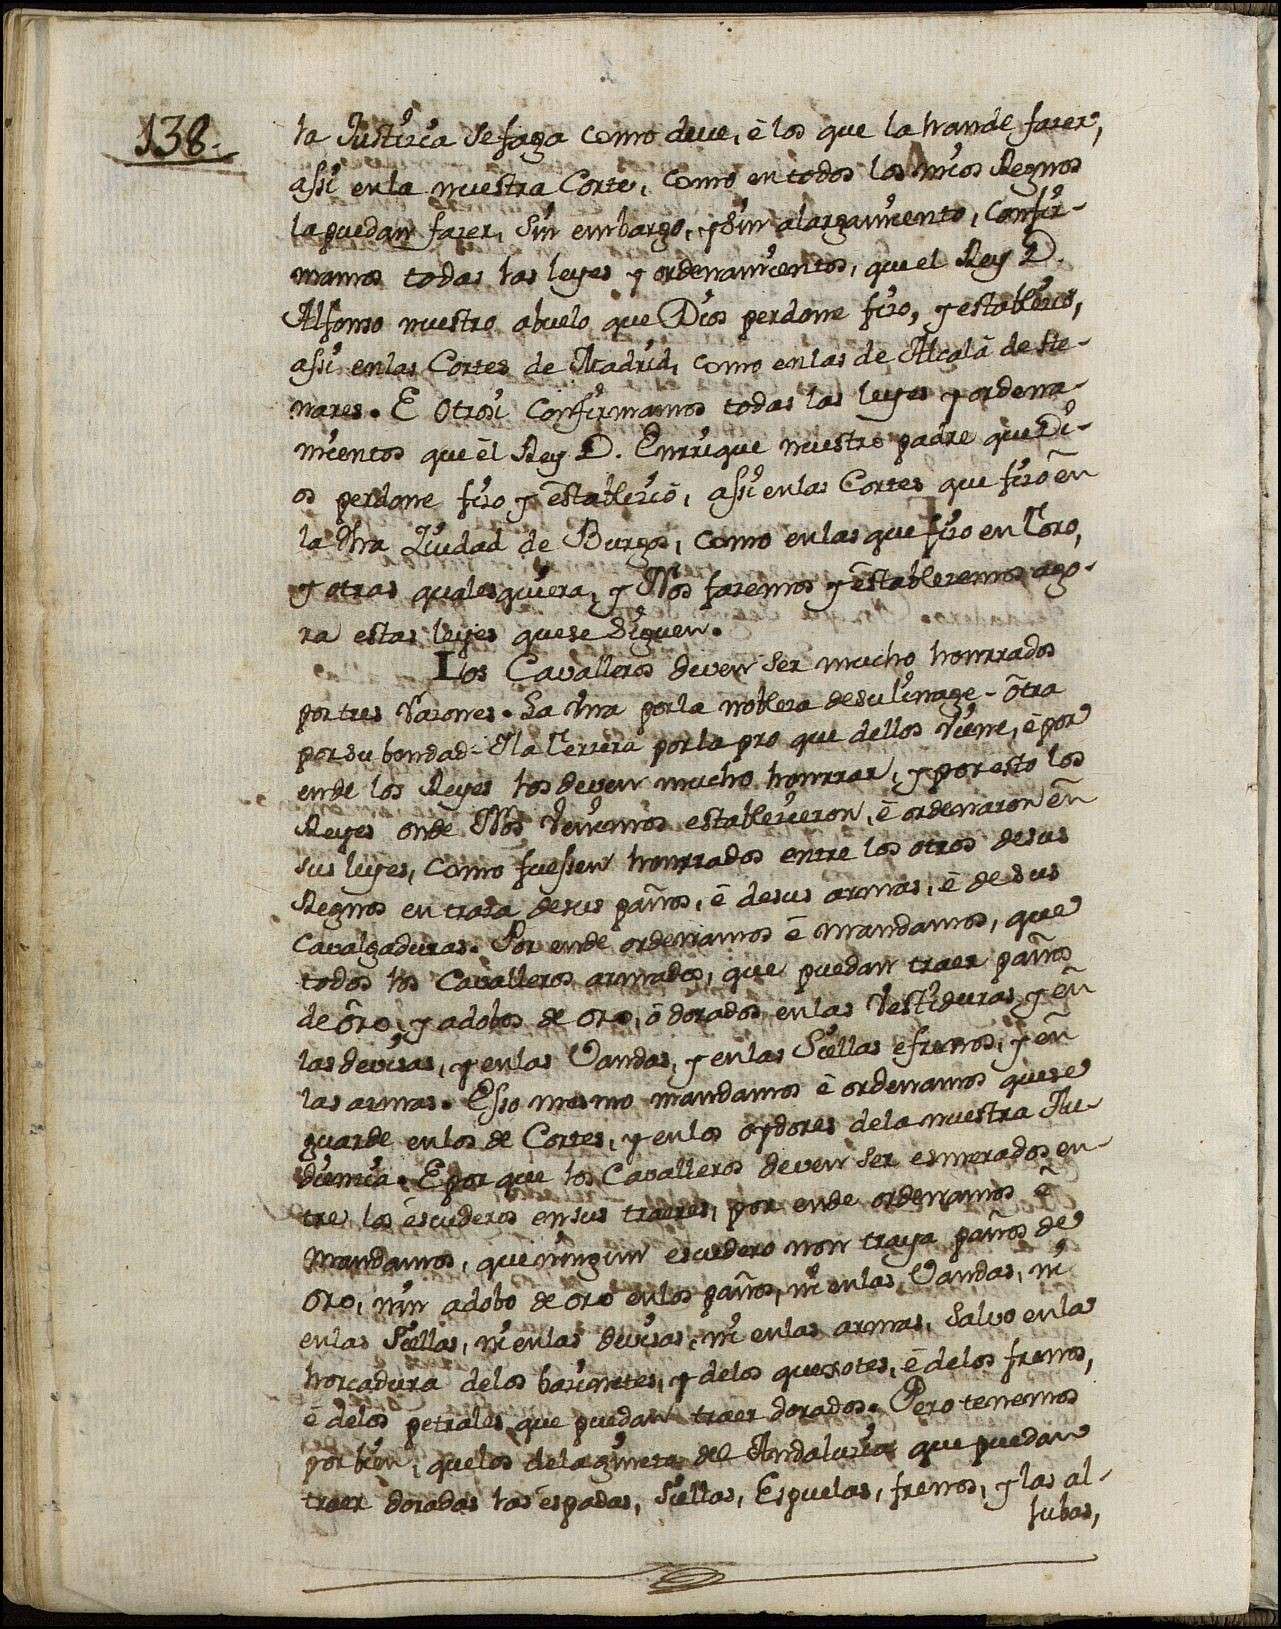 138.
la Justizia se faga como deve, è los que la han de fazer,
assi en la nuestra Corte, como en todos los nr̃os Regnos
la puedan fazer, sin embargo, y sin alargamiento, Confir-
mamos todas las leyes y ordenamientos, que el Rey D.
Alfonso nuestro abuelo que Dios perdone fizo, y establezió,
assi en las Cortes de Madrid, como en las de Alcalà de He-
nares. E otrosi Confirmamos todas las leyes y ordena-
mientos que èl Rey D. Enrrique nuestro padre que Di-
os perdone fizo y establezió, assi en las Cortes que fizo èn
la Nra Ziudad de Burgos, como en las que fizo en Toro,
y otras qualesquiera, y Nos fazemos y establezemos ago-
ra estas leyes que se siguen.
Los Cavalleros deven ser mucho honrrados
por tres razones. La vna por la nobleza de su linage - òtra
por su bondad - I la Terzera por la pro que dellos viene, è por
ende los Reyes los deven mucho honrrar, y por esto los
Reyes onde Nos venimos establezieron, è ordenaron èn
sus leyes, como fuessen honrrados entre los otros de sus
Regnos en traza de sus paños, è de sus armas, è de sus
Cavalgaduras. Por ende ordenamos è mandamos, que
todos los Cavalleros armados, que puedan traer paños
de òro, y adobos de oro, ò dorados en las vestiduras, y èn
las devisas, y en las Vandas, y en las Siellas e frenos, y èn
las armas. Esso mesmo mandamos è ordenamos que se
guarde en los de Cortes, y en los oydores de la nuestra Au-
diencia. E por que los Cavalleros deven ser esmerados en-
tre los escuderos en sus traeres, por ende ordenamos è
mandamos, que ningun escudero non traya paños de
oro, nin adobo de oro en los paños, ni en las Vandas, ni
en las Siellas, ni en las devisas, ni en las armas, salvo en la
horcadura de los bazinetes, y de los quexotes, è de los frenos,
è de los petrales que puedan traer dorados. Pero tenemos
por bien, que los de la gineta del Andaluzia que puedan
traer doradas las espadas, Siellas, Espuelas, frenos, y las al-
jubas,